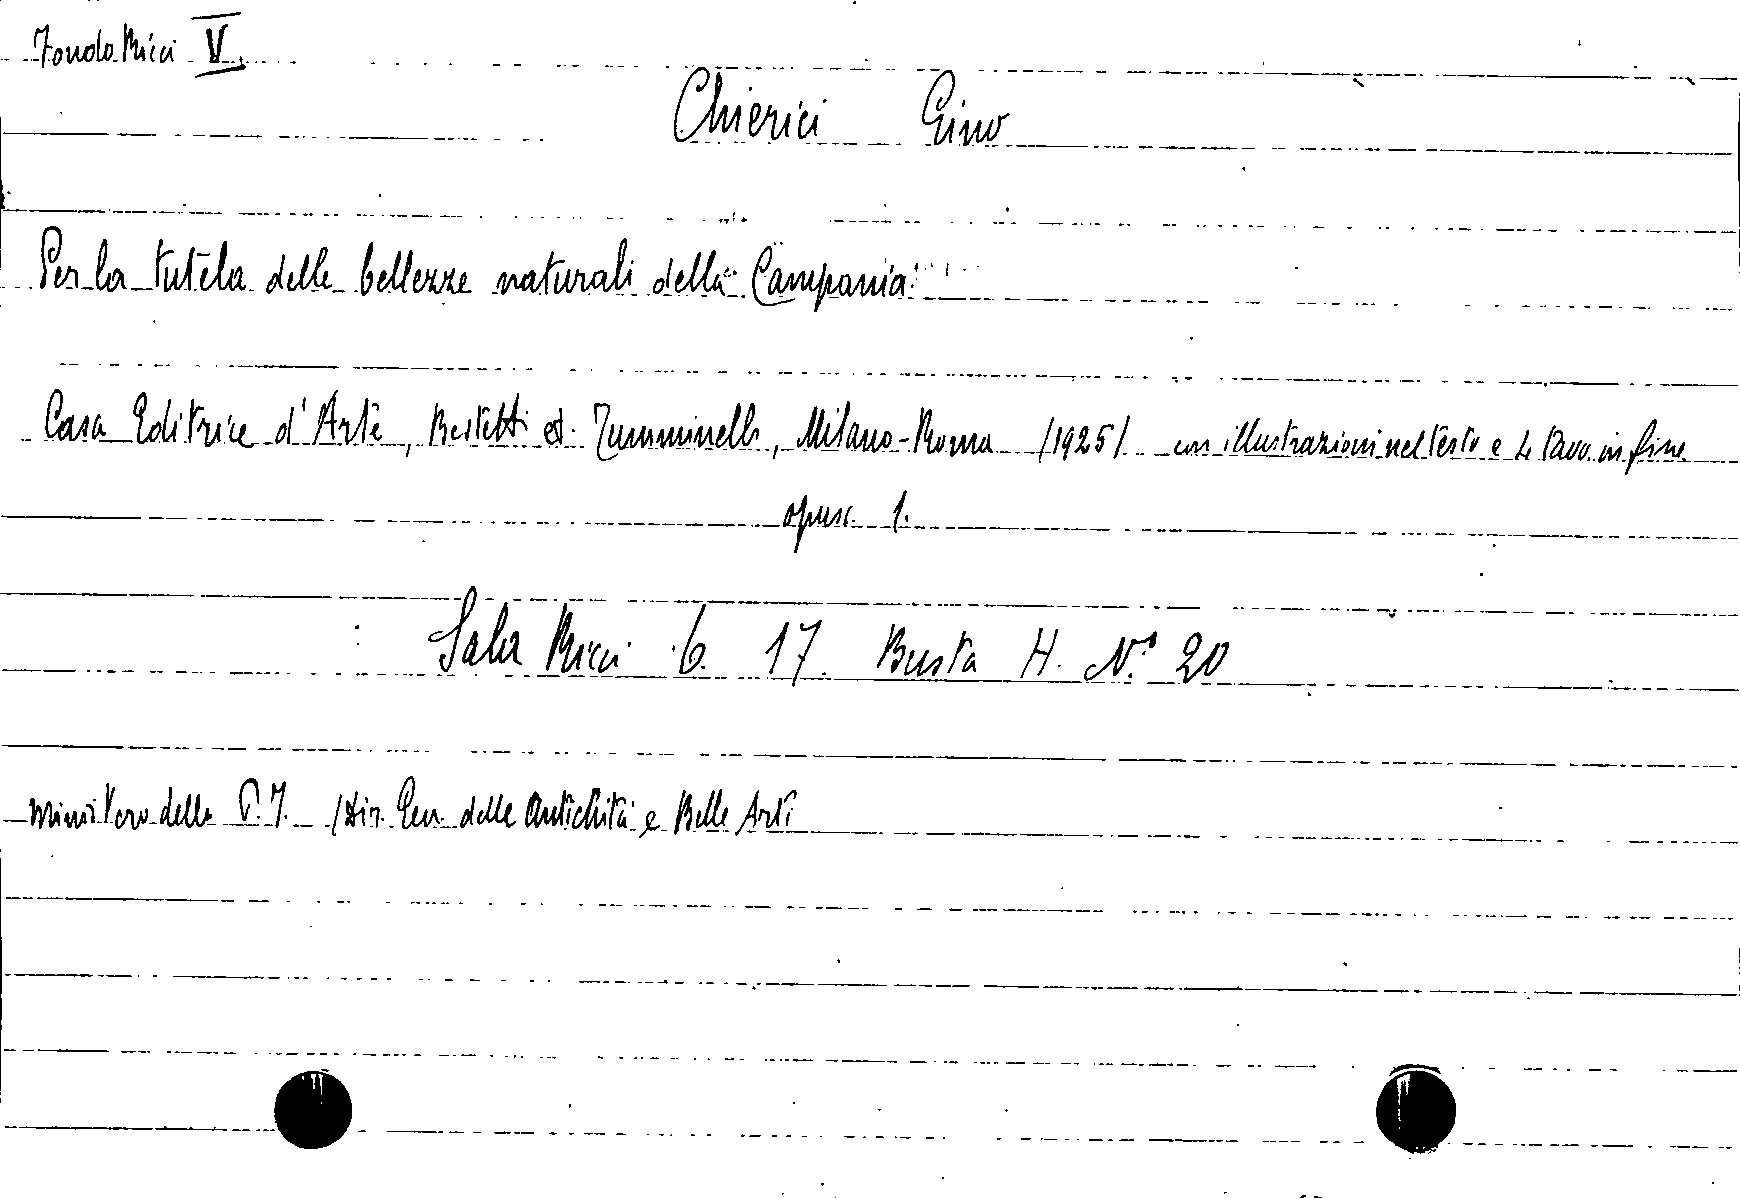 Fondo Ricci V.
Chierici Gino
Per la tutela delle bellezze naturali della Campania
Casa Editrice d'Arte, Bestetti et Tumminelli, Milano-Roma /1925/ con illustrazioni nel testo e 4 tavv. in fine
opusc. 1.
Sala Ricci 6. 17. Busta H. N.º 20
Ministero della P.I. /Dir. Gen. delle Antichità e Belle Arti